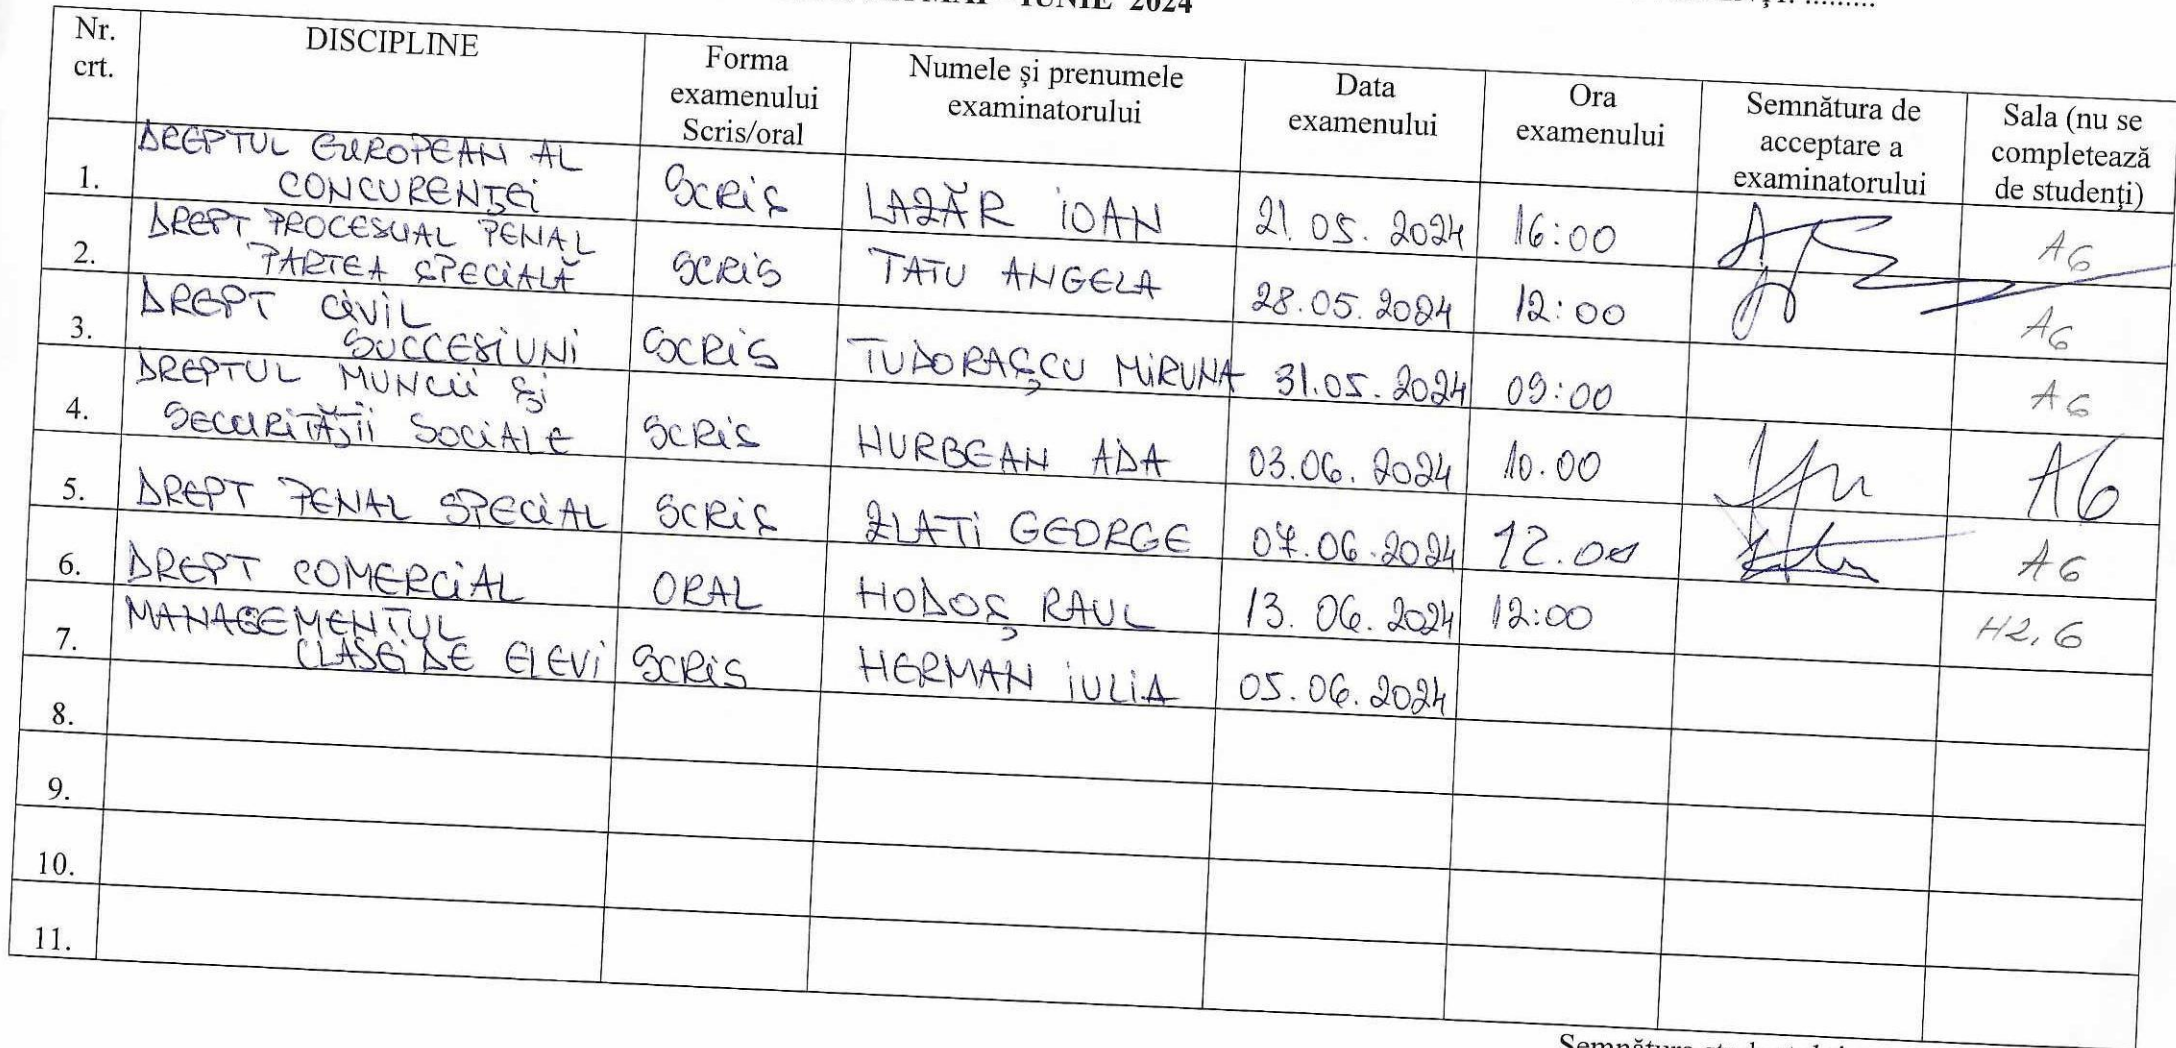 IUNIE 2024
Nr. crt.
DISCIPLINE
Forma examenului Scris/oral
Numele și prenumele examinatorului
Data examenului
Ora examenului
Semnătura de acceptare a examinatorului
Sala (nu se completează de studenți)
1. DREPTUL EUROPEAN AL CONCURENȚEI SCRIS LAZĂR IOAN 21.05.2024 16:00 A6
2. DREPT PROCESUAL PENAL PARTEA SPECIALĂ SCRIS TATU ANGELA 28.05.2024 12:00 A6
3. DREPT CIVIL SUCCESIUNI SCRIS TUDORAȘCU MIRUNA 31.05.2024 09:00 A6
4. DREPTUL MUNCII ȘI SECURITĂȚII SOCIALE SCRIS HURBEAN ADA 03.06.2024 10.00 A6
5. DREPT PENAL SPECIAL SCRIS ZLATI GEORGE 07.06.2024 12.00 A6
6. DREPT COMERCIAL ORAL HODOȘ RAUL 13.06.2024 12:00 H2.6
7. MANAGEMENTUL CLASEI DE ELEVI SCRIS HERMAN IULIA 05.06.2024
8.
9.
10.
11.